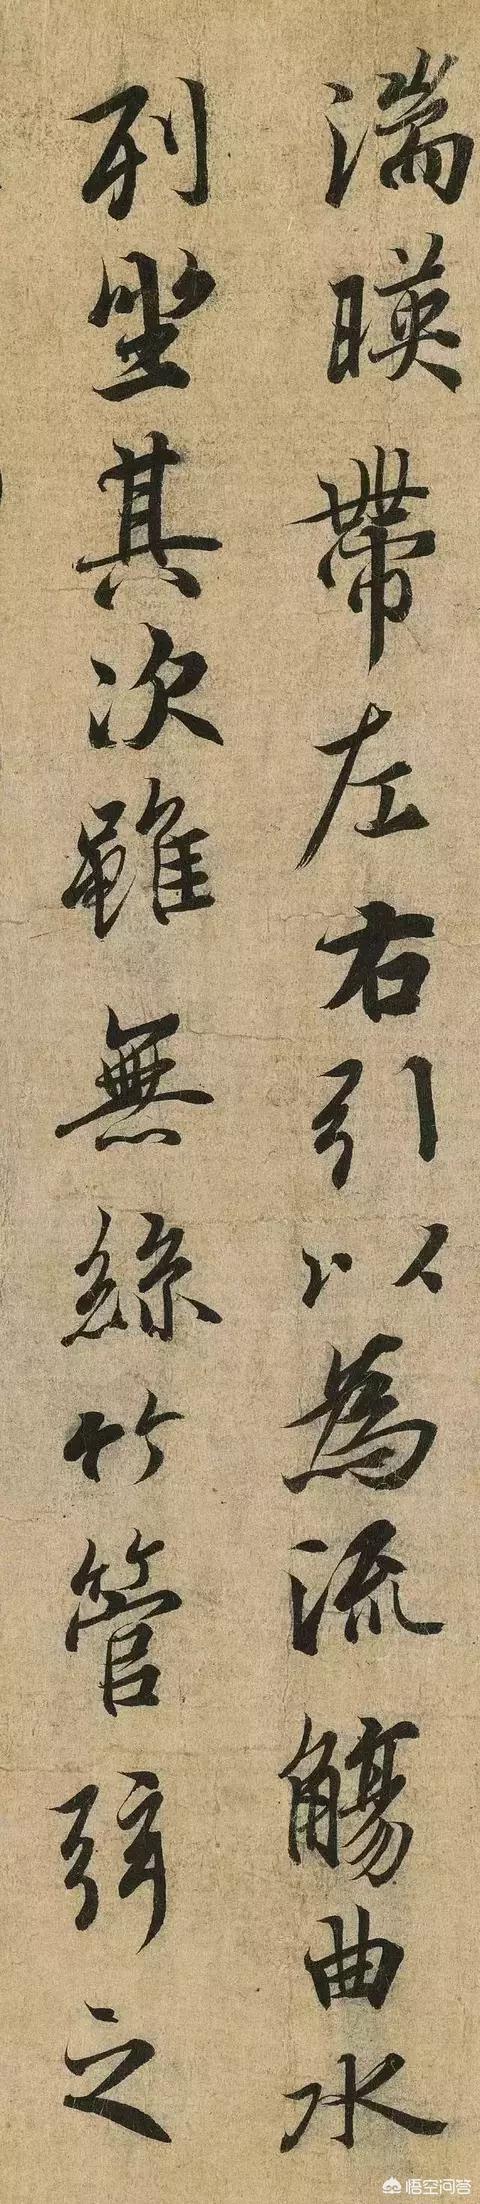 湍暎帶左右引以為流觴曲水
列坐其次雖無絲竹管弦之
悟空问答